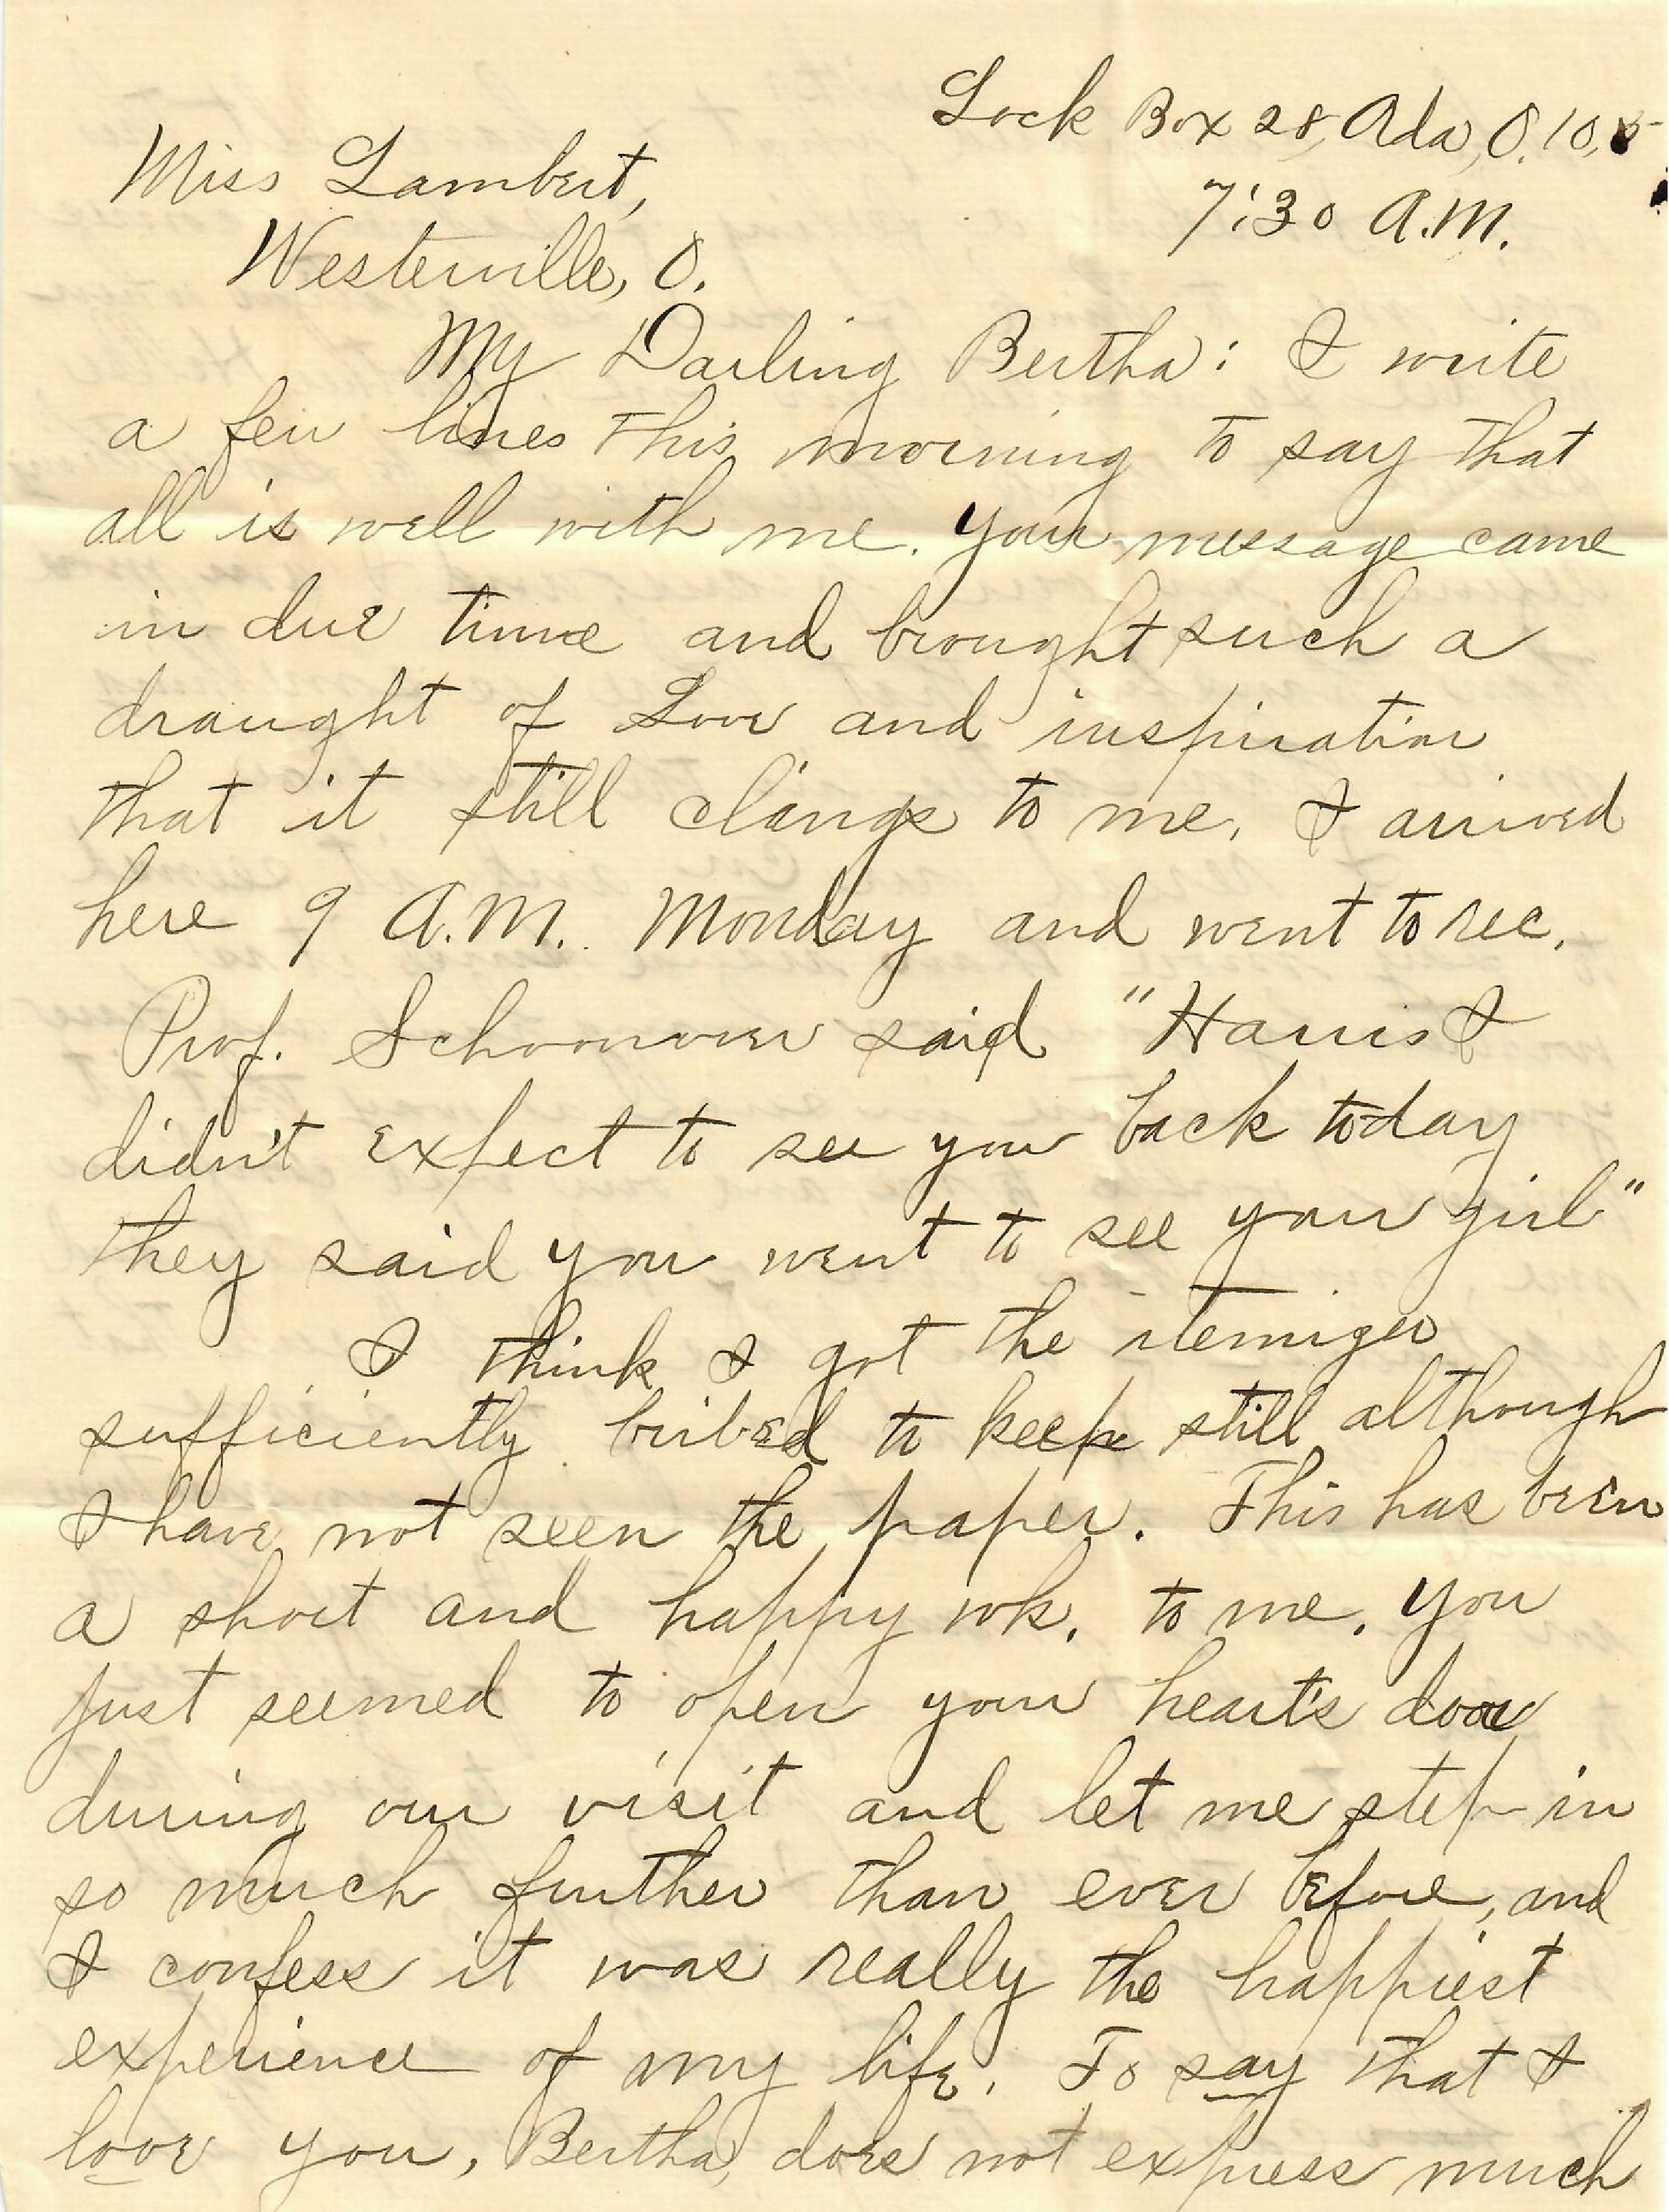 Lock Box 28, Ada, O. 10,
7:30 A.M.
Miss Lambert,
Westerville, O.
My Darling Bertha: I write
a few lines this morning to say that
all is well with me. Your message came
in due time and brought such a
draught of Love and inspiration
that it still clings to me. I arrived
here 9 A.M. Monday and went to rec.
Prof. Schoonover said "Harris I
didn't expect to see you back today
they said you went to see your girl"
I think I got the itemizer
sufficiently bribed to keep still although
I have not seen the paper. This has been
a short and happy wk. to me. You
just seemed to open your heart's door
during our visit and let me step in
so much further than ever before, and
I confess it was really the happiest
experience of my life. To say that I
love you, Bertha, does not express much